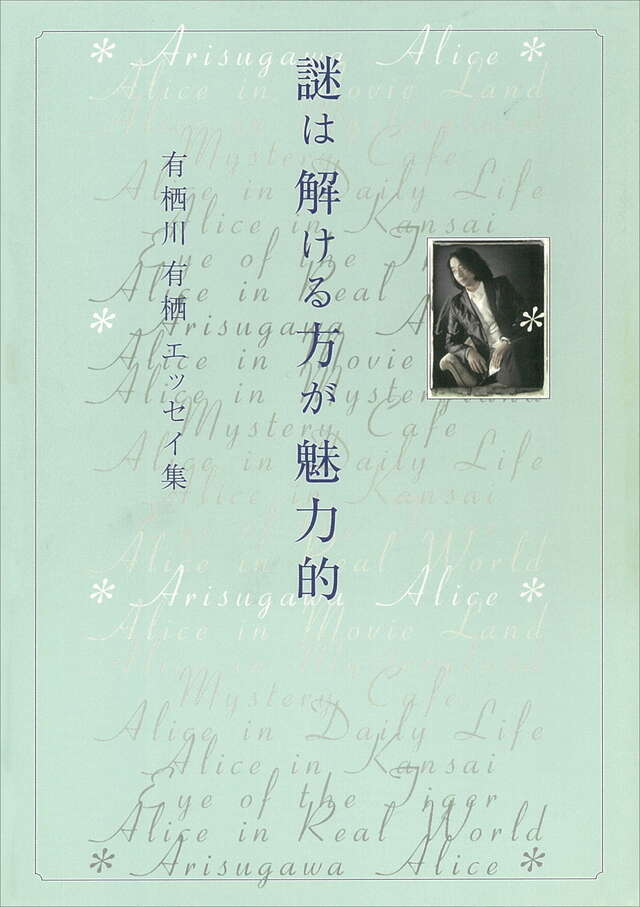 謎は解ける方が魅力的
有栖川有栖エッセイ集
* Arisugawa Alice *
Alice in Movie Land
Alice in Mysteryland
Mystery Cafe
Alice in Daily Life
Alice in Kansai
Eye of the
Alice in Real
* Arisugawa A *
Alice in Movie
Alice in Mystery
Mystery Cafe
Alice in Daily Life
Alice in Kansai
Alice in Real World
* Arisugawa Alice *
Alice in Movie Land
Alice in Mysteryland
Mystery Cafe
Alice in Daily Life
Alice in Kansai
Eye of the Tiger
Alice in Real World
* Arisugawa Alice *